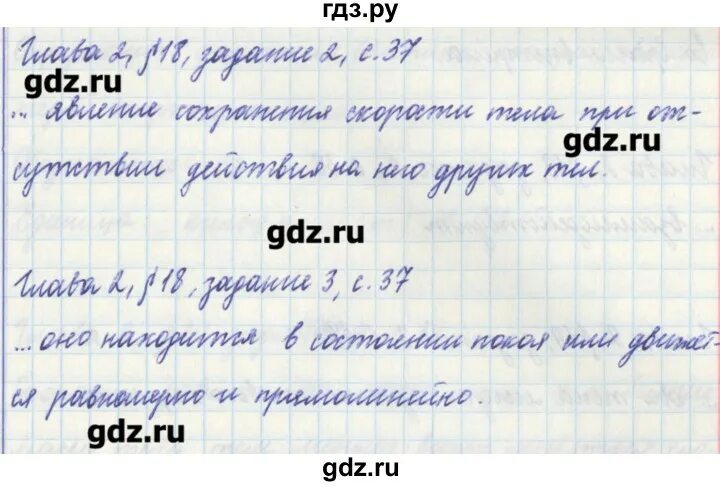 гдз.ру
Глава 2, §18, задание 2, с. 37
gdz.ru
... явление сохранения скорости тела при от-
gdz.ru
сутствии действия на него других тел.
gdz.ru
Глава 2, §18, задание 3, с. 37
... оно находится в состоянии покоя или движет-
ся равномерно и прямолинейно.
gdz.ru
gdz.ru